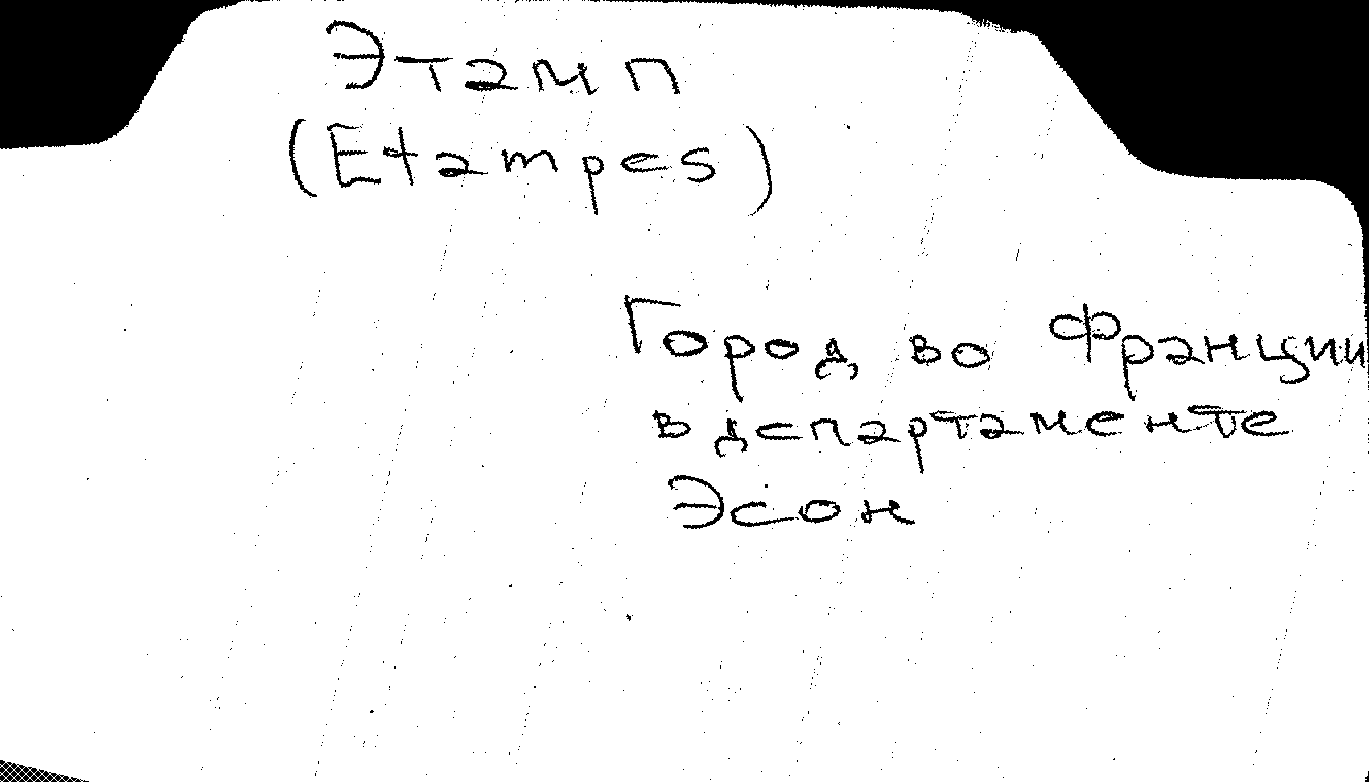 Этамп
(Etampes)
Город во Франции
в департаменте
Эсон